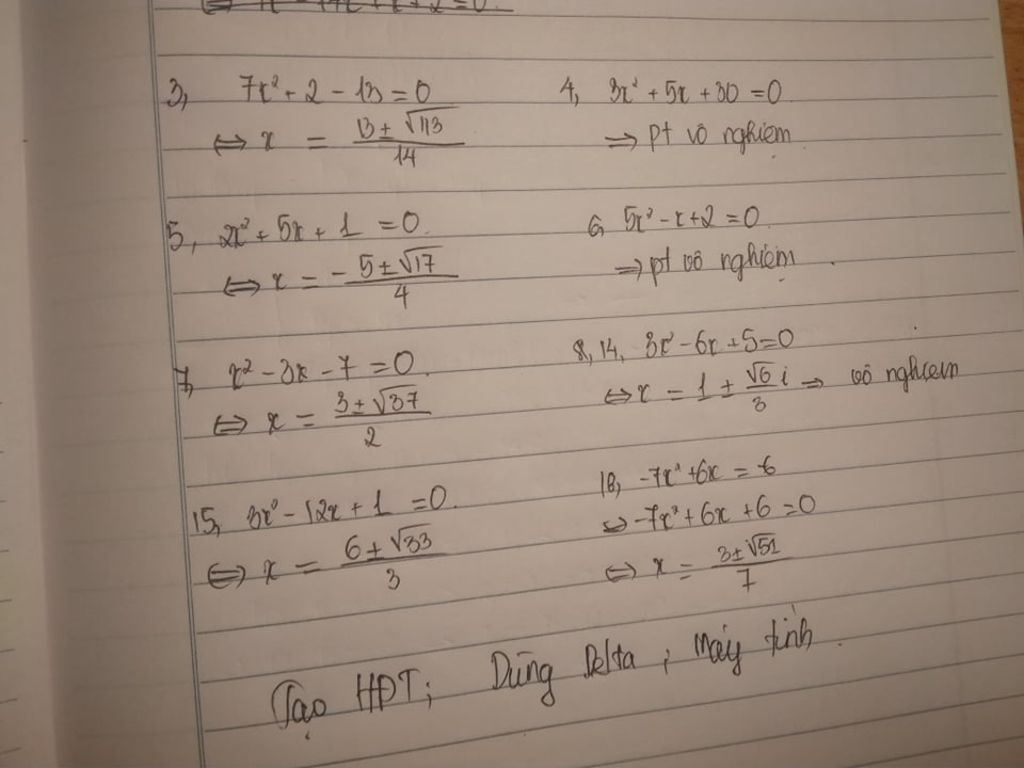 3, 7x² + 2 - 13 = 0
⇔ x = (13 ± √113)/14
4, 3x² + 5x + 30 = 0
⇒ pt vô nghiệm
5, 2x² + 5x + 1 = 0.
⇔ x = - (5 ± √17)/4
6, 5x² - x + 2 = 0
⇒ pt vô nghiệm.
7, x² - 3x - 7 = 0.
⇔ x = (3 ± √37)/2
8, 14, 3x² - 6x + 5 = 0
⇔ x = 1 ± (√6)/3 i ⇒ vô nghiệm
15, 3x² - 12x + 1 = 0.
⇔ x = (6 ± √33)/3
18, -7x² + 6x = -6
⇔ -7x² + 6x + 6 = 0
⇔ x = (3 ± √51)/7
Tạo HPT; Dùng Delta, máy tính.